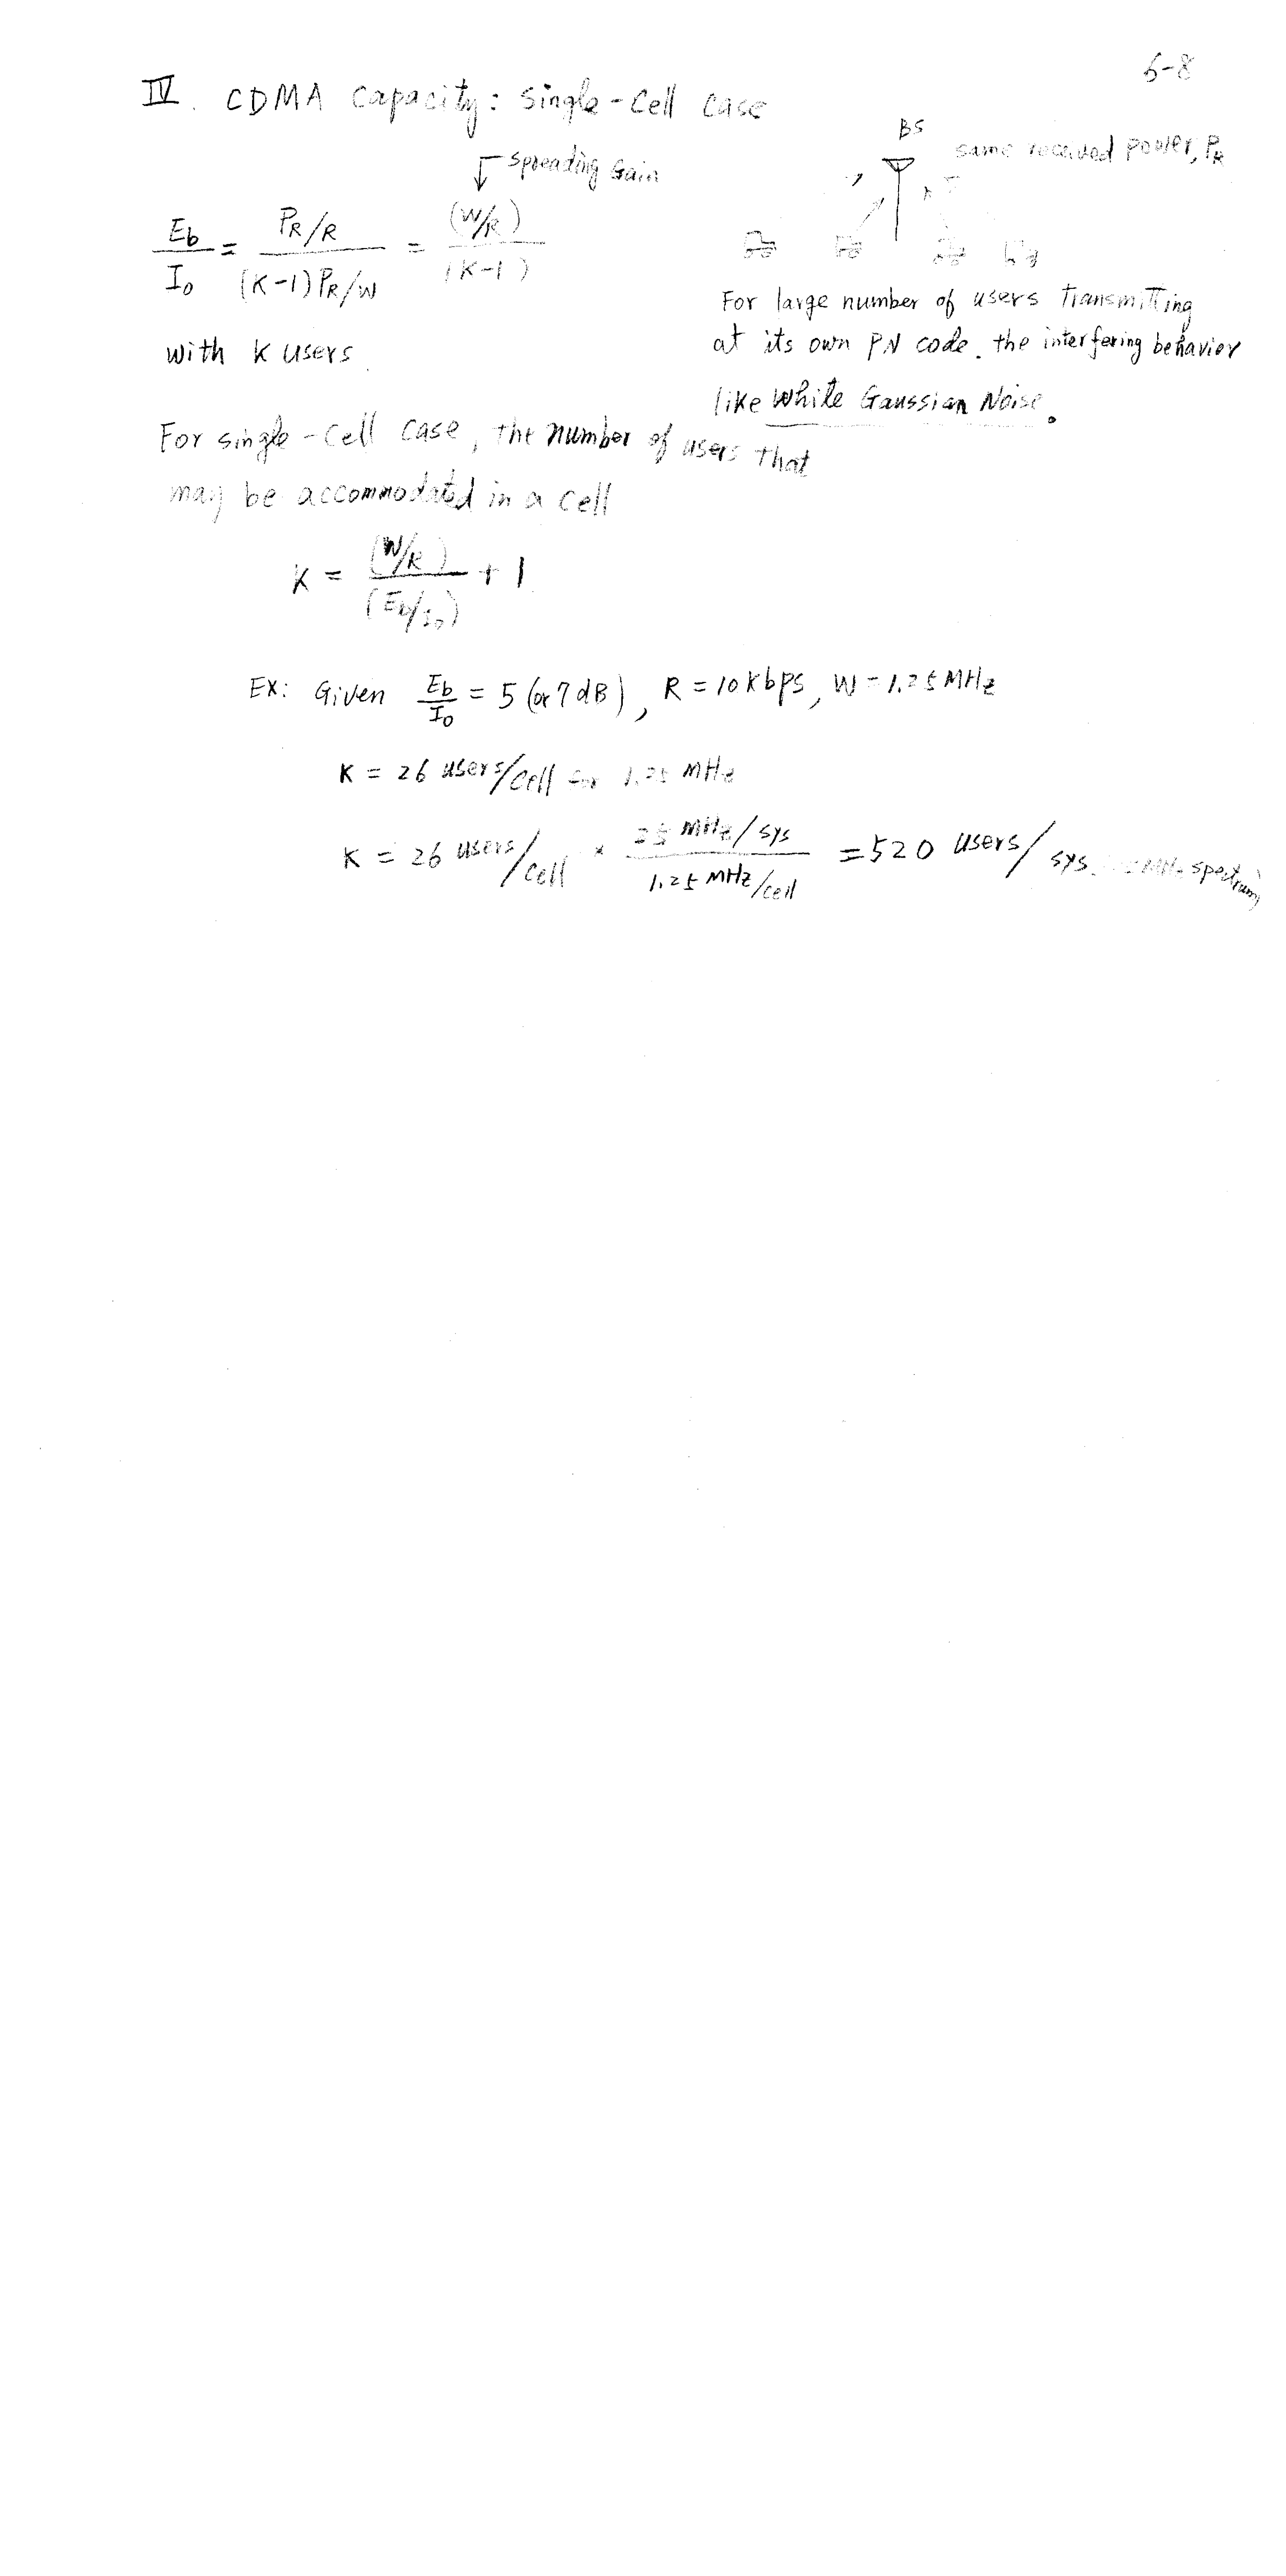 6-8
IV. CDMA Capacity: Single-Cell Case
BS
same received power, PR
Spreading Gain
Eb/I0 = (PR/R)/((K-1)PR/W) = (W/R)/(K-1)
with K users
For large number of users transmitting
at its own PN code. the interfering behavior
like White Gaussian Noise.
For single-cell case, the number of users that
may be accommodated in a cell
K = (W/R)/(Eb/I0) + 1
EX: Given Eb/I0 = 5 (or 7 dB), R = 10 kbps, W = 1.25 MHz
K = 26 users/cell for 1.25 MHz
K = 26 users/cell × (25 MHz/sys)/(1.25 MHz/cell) = 520 users/sys. MHz spectrum